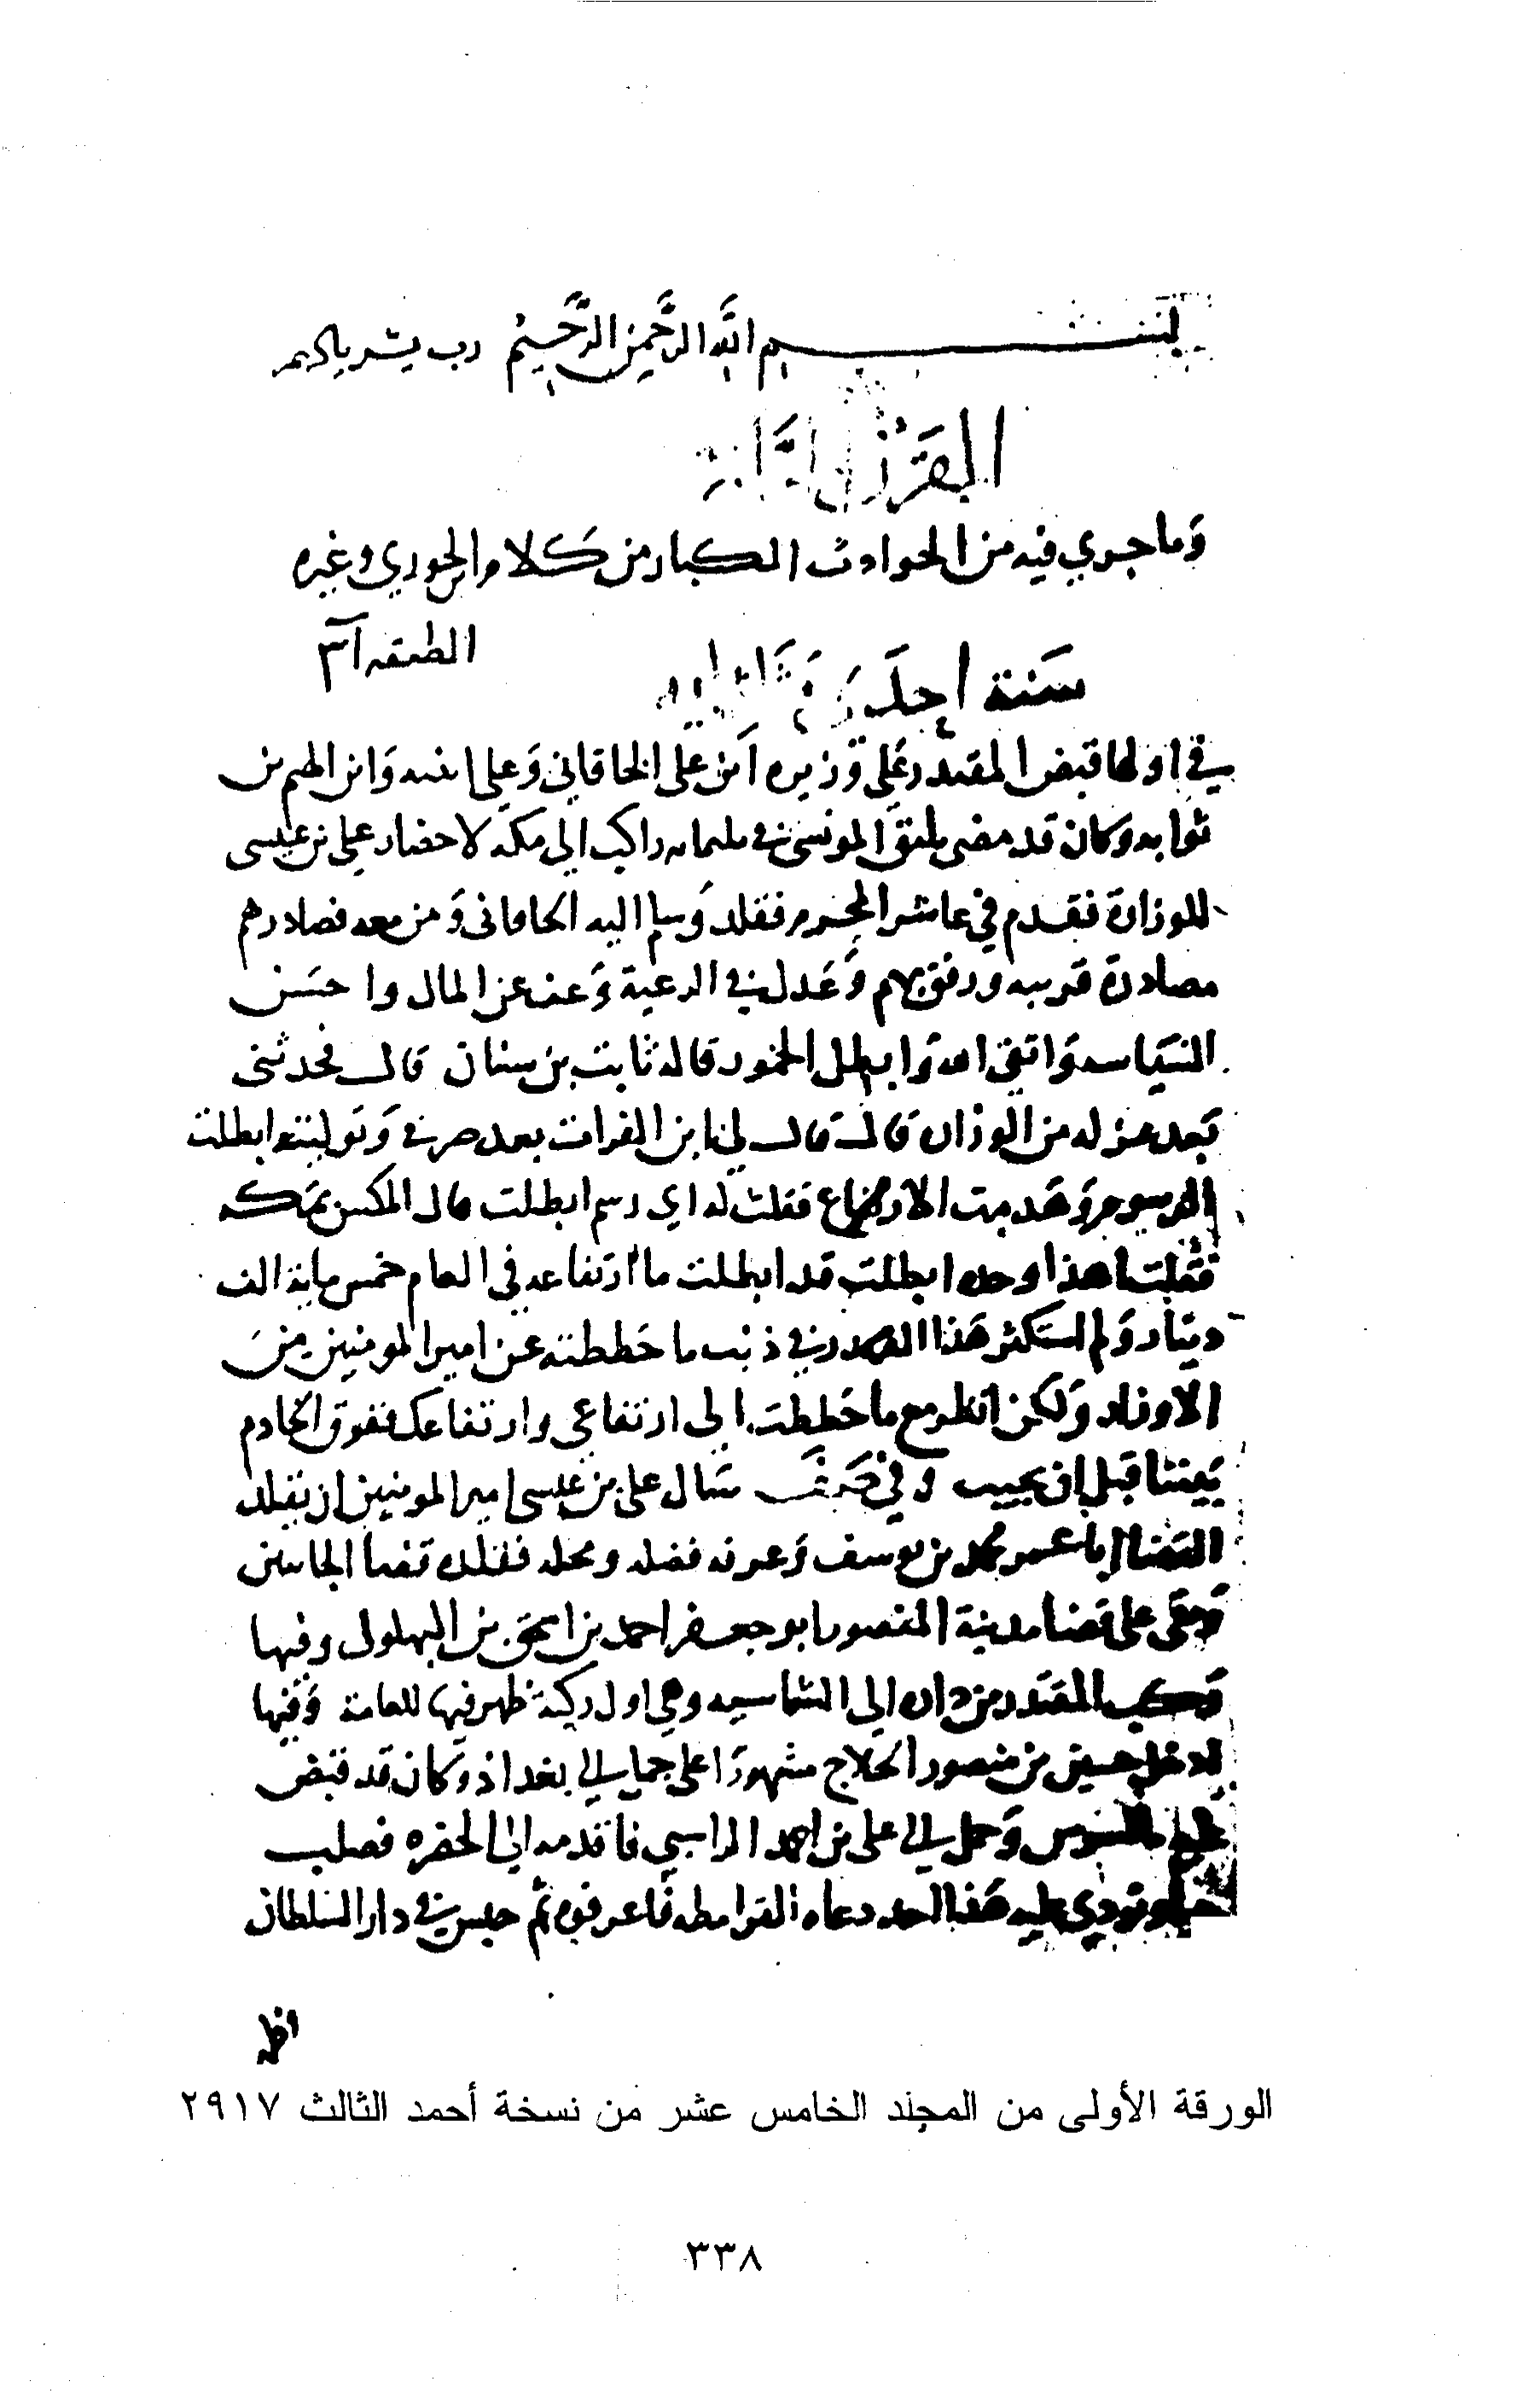 بسم الله الرحمن الرحيم رب يسر يا كريم
القرن الرابعة
وما جري فيه من الحوادث الكبار من كلام ابن الجوزي وغيره
الطبقه ٣١
سنة احدى وثلثمايه
في اولها قبض المقتدر على وزيره ابن على الخاقاني وعلى ابنيه وابن الهيثم بن
ثوابه وكان قد مضى يلبق المونسي في ثلثمايه راكب الي مكه لاحضار على بن عيسى
للوزارة فقدم في عاشر المحرم فقلد وسلم اليه الخاقانى ومن معه فصادرهم
مصادرة قريبه ورفق بهم وعدل في الرعية وعف عن المال واحسن
السياسه واتقى الله وابطل الخمور قاله ثابت بن سنان قال فحدثنى
بعد عزله من الوزاره قال قال لي ابن الفرات بعد صرفي وتوليته ابطلت
الرسوم وهدمت الارتفاع فقلت له اي رسم ابطلت قال المكس بمكه
فقلت هذا وحده ابطلت قد ابطلت ما ارتفاعه في العام خمس ماية الف
دينار ولم استكثر هذا القدر في ذنب ما حططته عن امير المومنين من
الاوزار ولكن انظر مع ما حططت الى ارتفاعي وارتفاعك ففرق الخادم
بيننا قبل ان يجيب وفي صفر سال على بن عيسى امير المومنين ان يقلد
القضا ابا عمر محمد بن يوسف وعرفه فضله ومحله فقلده قضا الجانبين
وبقى على قضا مدينة المنصور ابو جعفر احمد بن اسحق بن البهلول وفيها
ركب المقتدر من داره الي الشماسيه وهي اول ركبة ظهر فيها للعامة وفيها
ادخل حسين بن منصور الحلاج مشهورا على جمل الي بغداذ وكان قد قبض
عليه بالسوس وحمل الي على بن احمد الراسبي فاقدمه الي الحضره فصلب
حيا ونودي عليه هذا احد دعاه القرامطه فاعرفوه ثم حبس في دار السلطان
الورقة الأولى من المجلد الخامس عشر من نسخة أحمد الثالث ٢٩١٧
٣٣٨